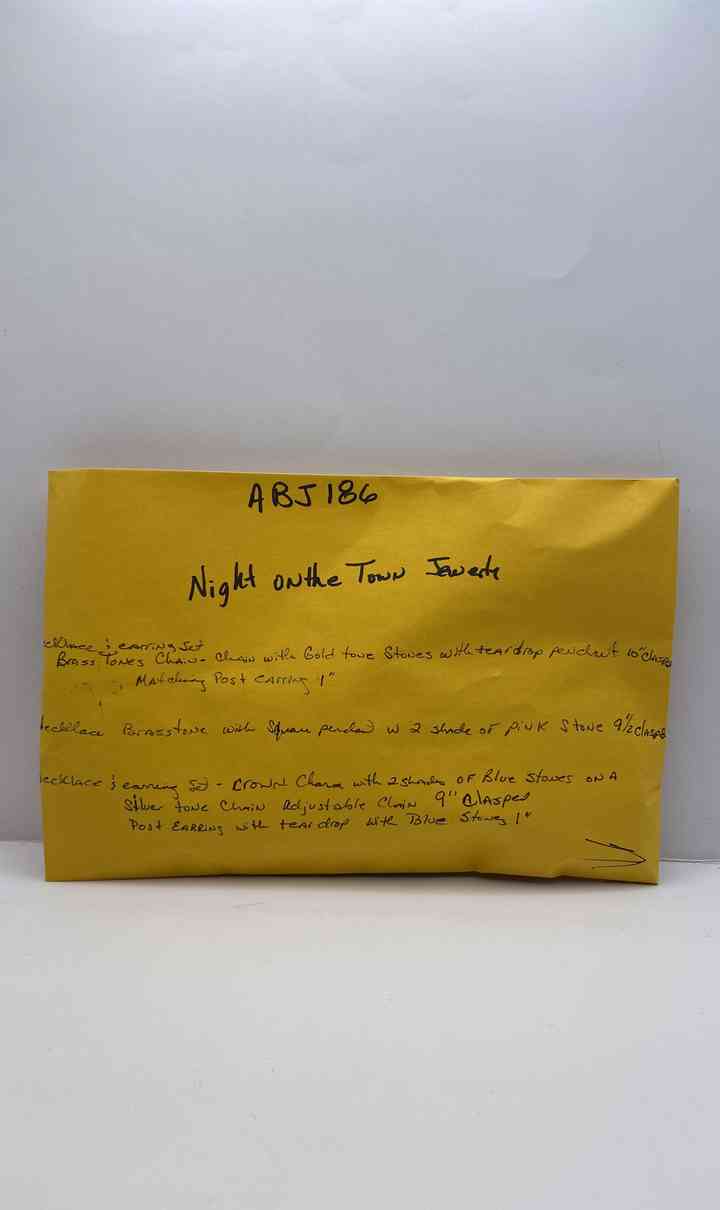 ABJ186
Night on the Town
ecklace & earring Set
Brass Tones Chain - Chain with Gold tone Stones with teardrop pendent 10" Clasped
Matching Post Earring 1"
Necklace Brasstone with Square pendant w 2 shade of PiNK Stone 9 1/2 clasped
ecklace & earring Set - Crown Charm with 2 shades of Blue Stones ON A
Silver tone Chain Adjustable Chain 9" Clasped
Post EARRING with teardrop with Blue Stones 1"